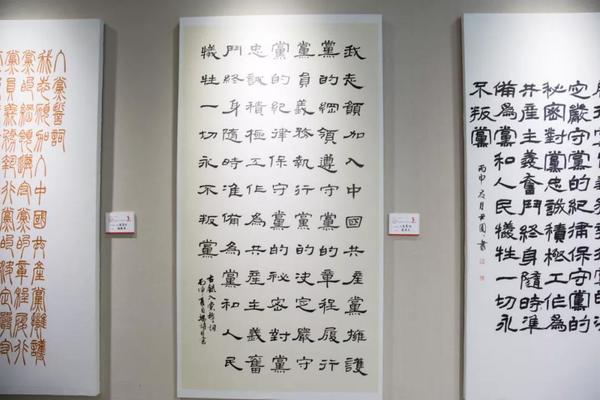 入黨誓詞
我志願加入中國共產黨擁護
黨的綱領遵守黨的章程履行
黨員義務執行黨的決定嚴守
我志願加入中國共產黨擁護
黨的綱領遵守黨的章程履行
黨員義務執行黨的決定嚴守
黨的紀律保守黨的秘密對黨
忠誠積極工作為共產主義奮
鬥終身隨時准備為黨和人民
犧牲一切永不叛黨
右錄入黨誓詞
丙申夏月
定嚴守黨的紀律保守黨的
秘密對黨忠誠積極工作為
共產主義奮鬥終身隨時準
備為黨和人民犧牲一切永
不叛黨
丙申夏月尹圓書